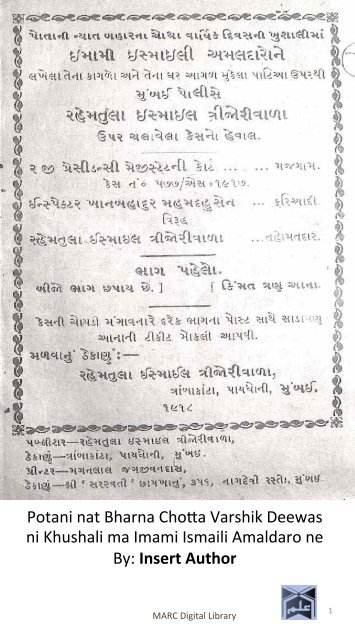 પોતાની ન્યાત બહારના ચોથા વાર્ષિક દિવસની ખુશાલીમાં
ઇમામી ઇસ્માઇલી અમલદારોને
લખેલા તેના કાગળો અને તેના ઘર આગળ મુકેલા પાટિઆ ઉપરથી
મુંબઈ પોલીસે
રહેમતુલા ઇસ્માઇલ ત્રીજોરીવાળા
ઉપર ચલાવેલા કેસનો હેવાલ.
૨ જી પ્રેસીડન્સી મેજીસ્ટ્રેટની કોર્ટ ... ... મજગામ.
કેસ નં૦ ૫૭૭/એસ૦૧૯૧૭.
ઈન્સ્પેક્ટર ખાનબહાદુર મહમદહુસેન ... ફરિઆદી.
વિરૂદ્ધ
રહેમતુલા ઈસ્માઇલ ત્રીજોરીવાળા ...તહોમતદાર.
ભાગ પહેલો.
બીજો ભાગ છપાય છે. ] [ કિંમત ત્રણ આના.
કેસની ચોપડી મંગાવનારે દરેક ભાગના પોસ્ટ સાથે સાડાત્રણ
આનાની ટીકીટ મોકલી આપવી.
મળવાનું ઠેકાણું:—
રહેમતુલા ઈસ્માઇલ ત્રીજોરીવાળા,
ત્રાંબાકાંટા, પાયધોની, મુંબઈ.
૧૯૧૮
પબ્લીશર—રહેમતુલા ઇસમાઇલ ત્રીજોરીવાળા,
ઠેકાણું—ત્રાંબાકાંટા, પાયધોની, મુંબઇ.
પ્રીન્ટર—મગનલાલ જગજીવનદાસ,
ઠેકાણું—શ્રી ‘ સરસ્વતી ’ છાપખાનું, ૩૫૬, નાગદેવી રસ્તો, મુંબઇ.
Potani nat Bharna Chotta Varshik Deewas
ni Khushali ma Imami Ismaili Amaldaro ne
By: Insert Author
علم
MARC Digital Library
1